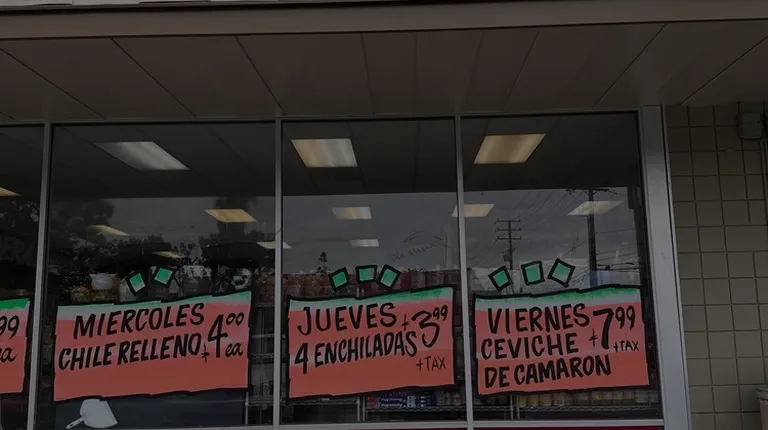 99
ea
MIERCOLES
CHILE RELLENO $4.00 ea
JUEVES $3.99
4 ENCHILADAS
+ TAX
VIERNES $7.99
CEVICHE + TAX
DE CAMARON